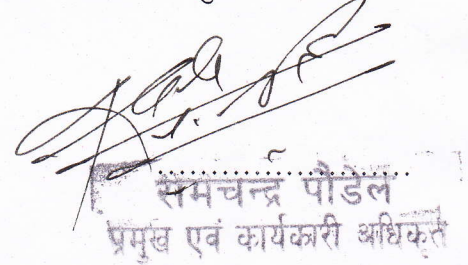 रामचन्द्र पौडेल
प्रमुख एवं कार्यकारी अधिकृत